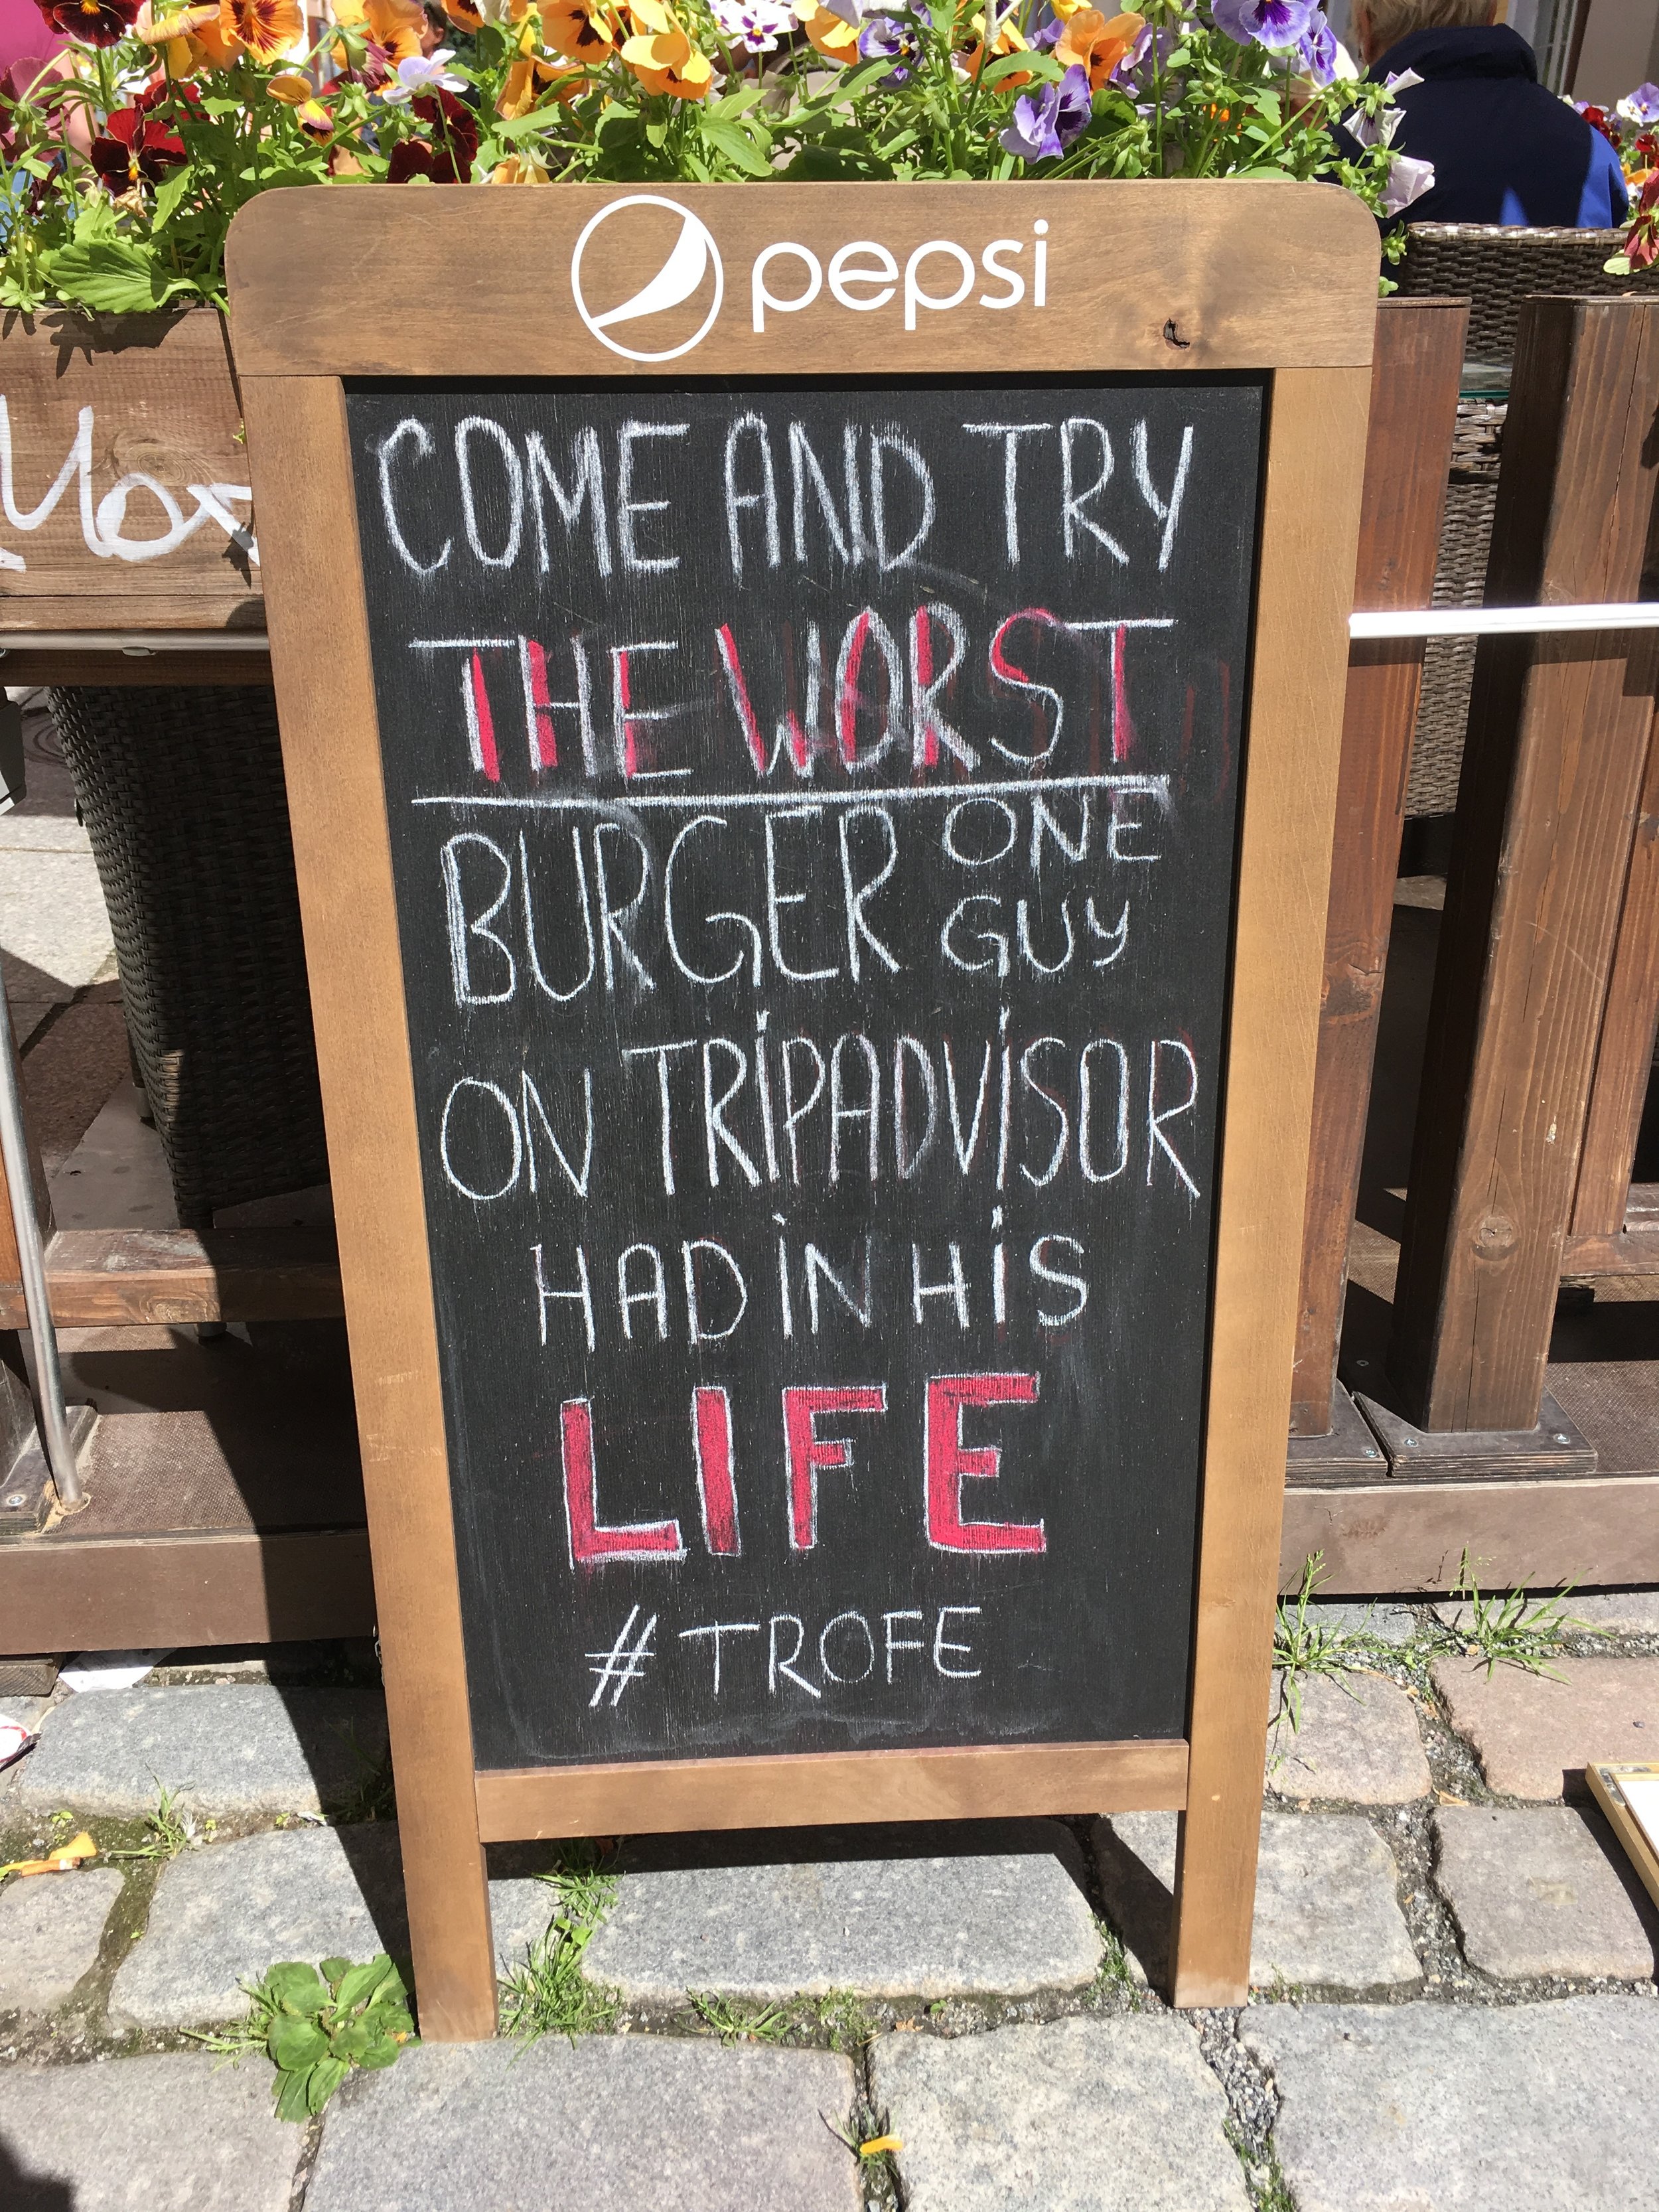 pepsi
COME AND TRY
THE WORST
BURGER ONE
GUY
ON TRİPADVİSOR
HAD İN HİS
LIFE
#TROFE